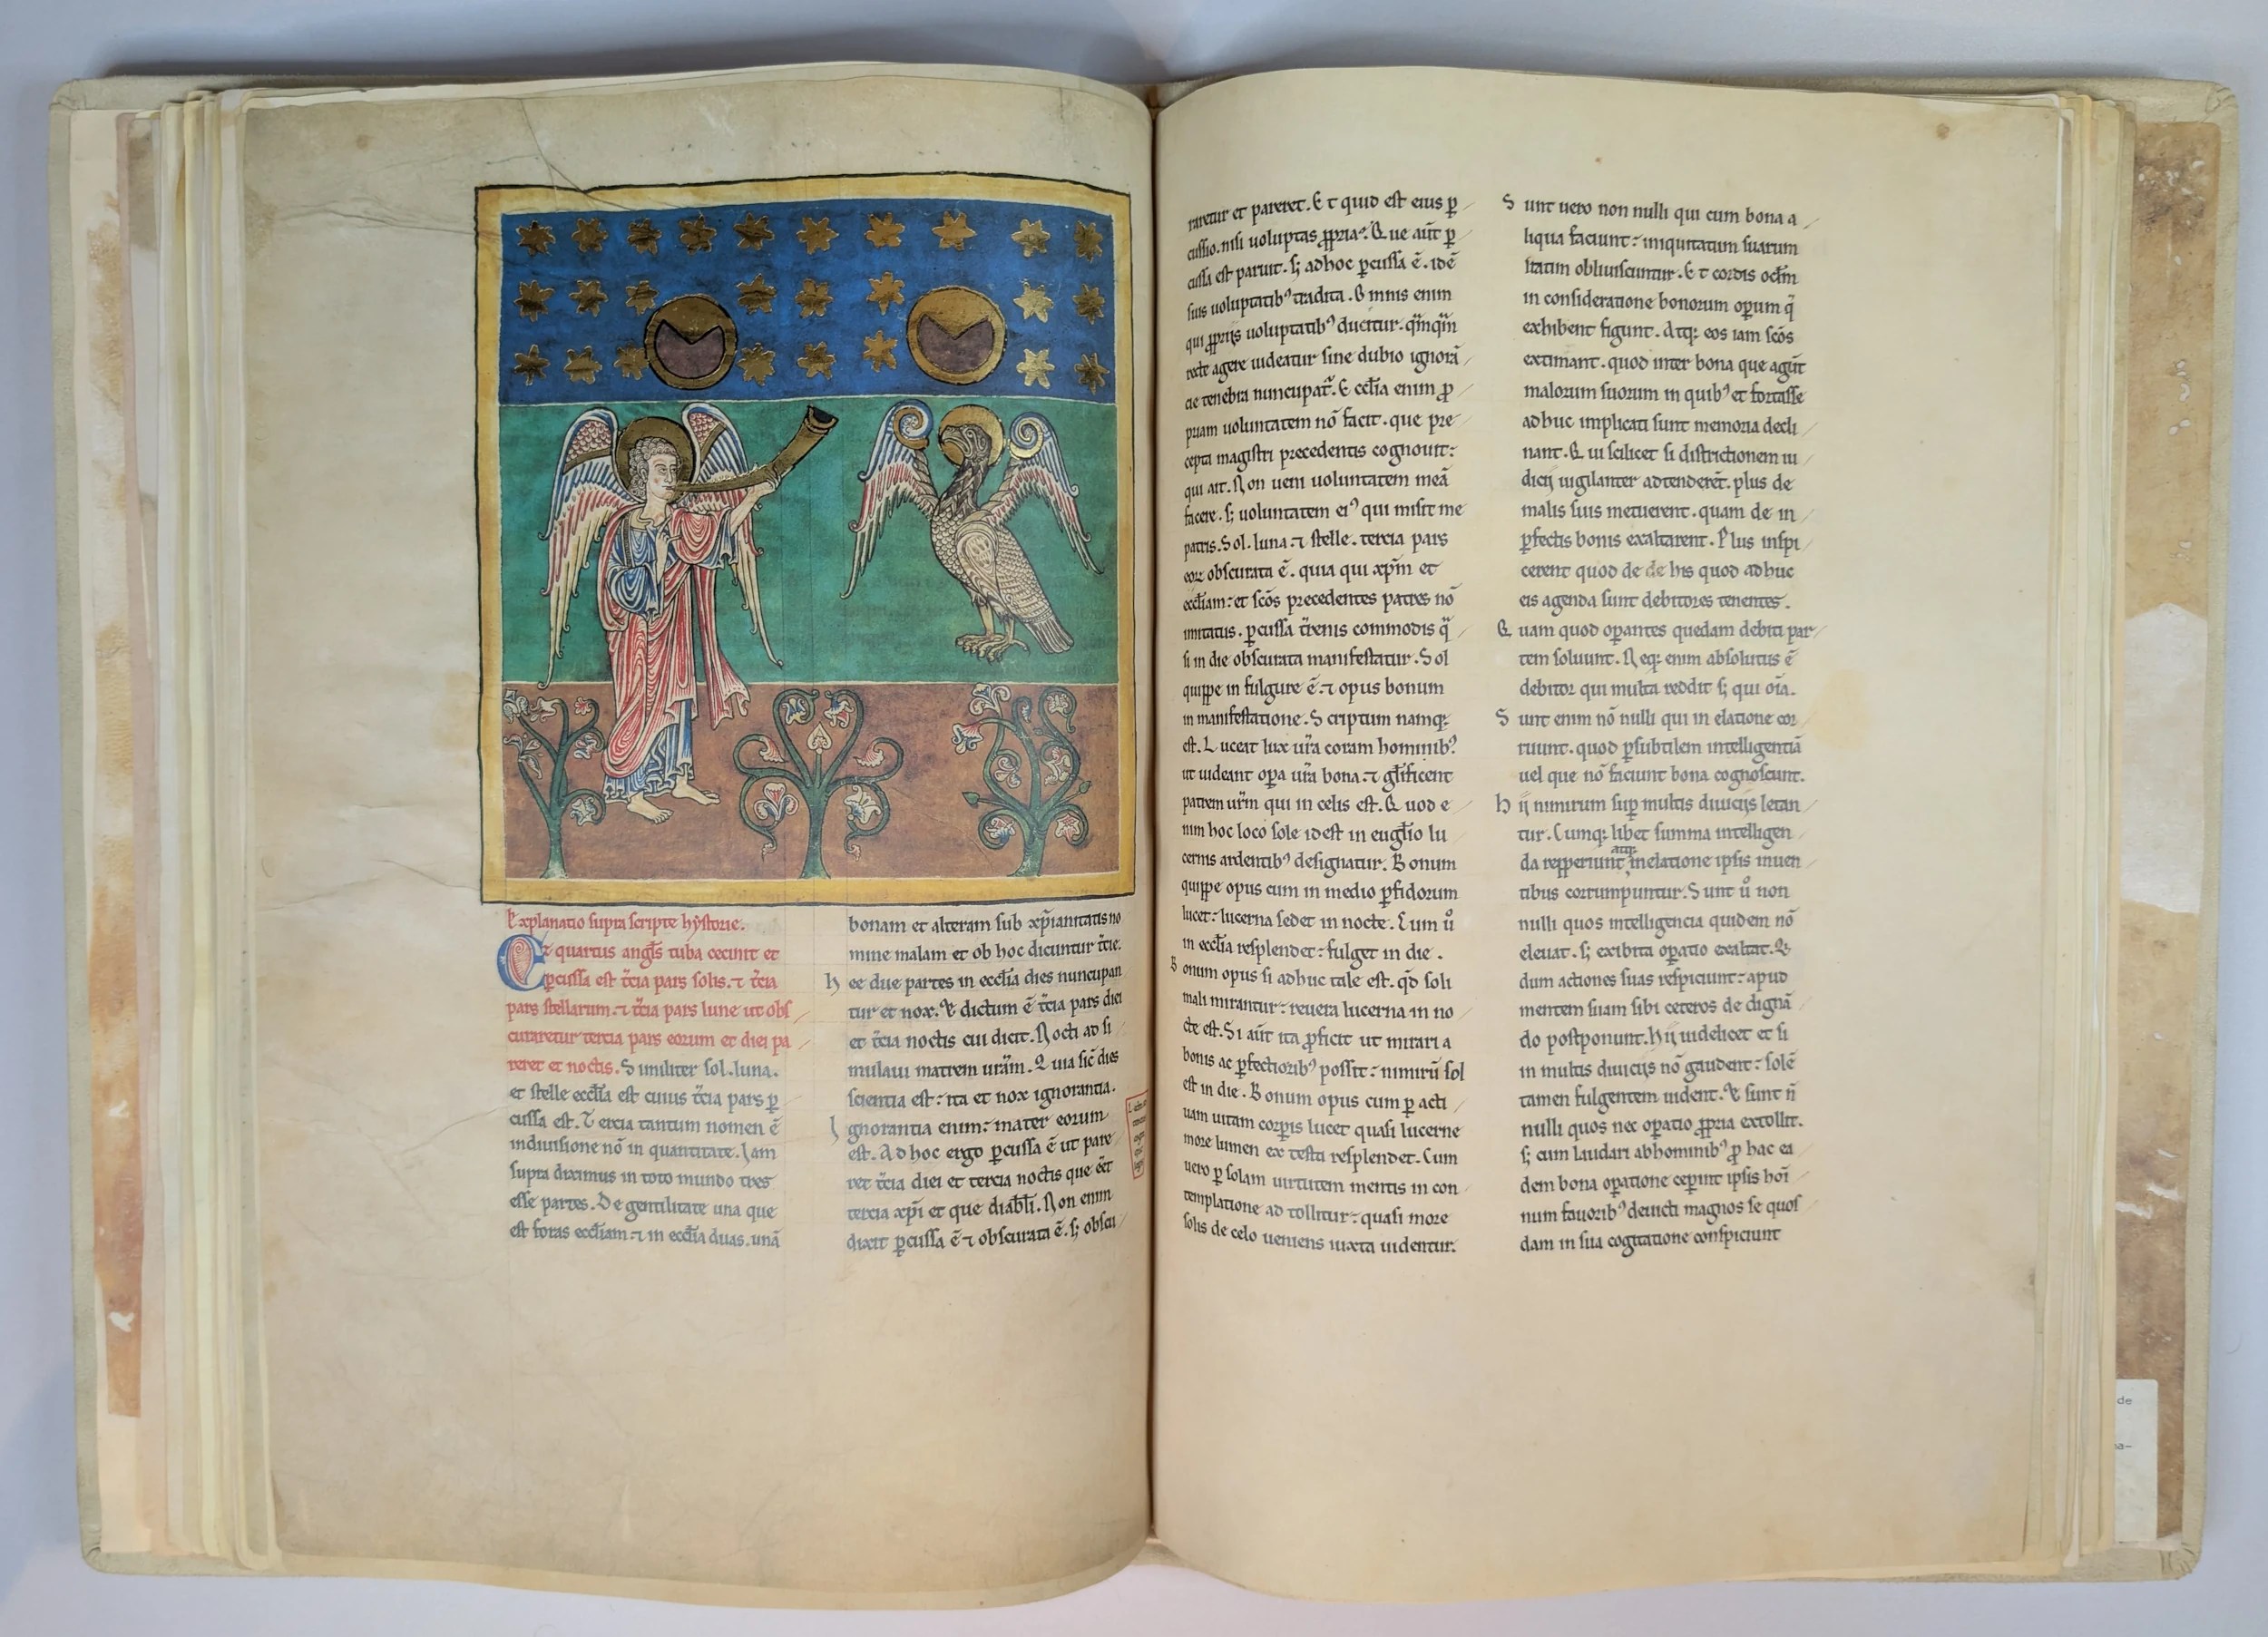 Explanatio supra scripte hystorie.
Et quartus angls tuba cecinit et
pcussa est tcia pars solis. ⁊ tcia
pars stellarum. ⁊ tcia pars lune ut obs
curaretur tercia pars eorum et diei pa
reret et noctis. Similiter sol. luna.
et stelle ecclia est cuius tcia pars p
cussa est. Tercia tantum nomen ē
indiuisione nō in quantitate. Iam
supra diximus in toto mundo tres
esse partes. De gentilitate una que
est foras eccliam. ⁊ in ecclia duas. unā
bonam et alteram sub xpianitatis no
mine malam et ob hoc dicuntur tcie.
hee due partes in ecclia dies nuncupan
tur et nox. Et dictum ē tcia pars diei
et tcia noctis cui dicit. Nocti ad si
mulaui matrem uram. Quia sic dies
scientia est: ita et nox ignorantia.
Ignorantia enim: mater eorum
est. Ad hoc ergo pcussa ē ut pare
ret tcia diei et tercia noctis que eēt
tercia xpi et que diabli. Non enim
dixit pcussa ē ⁊ obscurata ē. s; obscu
raretur et pareret. Et quid est eius p
cussio. nisi uoluptas ppria? Que aūt p
cussa est paruit. s; ad hoc pcussa ē. idē
suis uoluptatib' tradita. Omnis enim
qui ppriis uoluptatib' ducitur. qmqm
recte agere uideatur sine dubio ignorā
cie tenebra nuncupat. Ecclia enim p
priam uoluntatem nō facit. que pre
cepta magistri precedentis cognouit:
qui ait. Non ueni uoluntatem meā
facere. s; uoluntatem ei' qui misit me
patris. Sol. luna ⁊ stelle. tercia pars
eorz obscurata ē. quia qui xpm et
eccliam: et scōs precedentes patres nō
imitatus. pcussa trenis commodis q
si in die obscurata manifestatur. Sol
quippe in fulgure ē. ⁊ opus bonum
in manifestatione. Scriptum namq;
est. Luceat lux ura coram hominib'
ut uideant opa ura bona. ⁊ glificent
patrem urm qui in celis est. Quod e
nim hoc loco sole idest in euglio lu
cernis ardentib' designatur. Bonum
quippe opus cum in medio pfidorum
lucet: lucerna sedet in nocte. Cum uo
in ecclia resplendet: fulget in die.
Bonum opus si adhuc tale est. qd soli
mali mirantur: reuera lucerna in no
cte est. Si aūt ita pficit ut mirari a
bonis ac pfectiorib' possit: nimirū sol
est in die. Bonum opus cum p acti
uam uitam corpis lucet quasi lucerne
more lumen ex testa resplendet. Cum
uero p solam uirtutem mentis in con
templatione ad tollitur: quasi more
solis de celo ueniens iuxta uidentur.
Sunt uero non nulli qui cum bona a
liqua faciunt: iniquitatum suarum
statim obliuiscuntur. Et cordis oclm
in consideratione bonorum opum q
exhibent figunt. Atq; eos iam scōs
extimant. quod inter bona que agūt
malorum suorum in quib' et fortasse
adhuc implicati sunt memoria decli
nant. Qui scilicet si districtionem iu
dicij uigilanter adtenderēt. plus de
malis suis metuerent. quam de in
pfectis bonis exaltarent. Plus inspi
cerent quod de de his quod adhuc
eis agenda sunt debitores tenentes.
Quam quod opantes quedam debiti par
tem soluunt. Neq; enim absolutus ē
debitor qui multa reddit s; qui oīa.
Sunt enim nō nulli qui in elatione cor
ruunt. quod psubtilem intelligentiā
uel que nō faciunt bona cognoscunt.
hij nimirum sup multis diuicijs letan
tur. Cumq; libet summa intelligen
da repperiunt, atq; inelatione ipsis inuen
tibus corrumpuntur. Sunt uo non
nulli quos intelligencia quidem nō
eleuat. s; exibita opatio exaltat. Qi
dum actiones suas respiciunt: apud
mentem suam sibi ceteros de dignā
do postponunt. hij uidelicet et si
in multis diuicijs nō gaudent: solē
tamen fulgentem uident. Et sunt ñ
nulli quos nec opatio ppria extollit.
s; cum laudari abhominib' p hac ea
dem bona opatione cepint ipsis homi
num fauorib' deuicti magnos se quos
dam in sua cogitatione conspiciunt
de